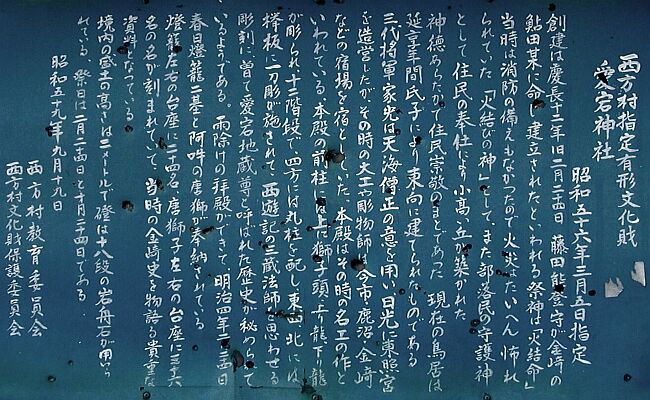 西方村指定有形文化財
愛宕神社
昭和五十六年三月五日指定
創建は慶長十二年旧二月二十四日 藤田能登守が金崎の
鮎田某に命じ建立されたといわれる祭神は「火結命」
当時は消防の備えもなかったので火災はたいへん怖れ
られていた「火結びの神」として、また部落民の守護神
として 住民の奉仕により小高い丘が築かれた
神徳あらたかで住民崇敬のまとであった 現在の鳥居は
延享年間氏子により東向に建てられたものである
三代将軍家光は天海僧正の意を用い日光に東照宮
を造営したが その時の大工 彫物師は 今市 鹿沼 金崎
などの宿場を宿としていた、本殿はその時の名工の作と
いわれている、本殿の前柱に向上に獅子頭 上り龍 下り龍
が彫られ 十二階段で 四方には丸柱を配し 東 西 北には
搭板に一刀彫が施されて 西遊記の三蔵法師を思わせる
彫刻に 曽て愛宕地蔵尊と呼ばれた歴史が秘められて
いるようである。雨除けの拝殿ができて 明治四年二月二十四日
春日燈籠二基と阿吽の唐獅が奉納されている
燈籠左右の台座に二十四名 唐獅子左右の台座に三十六
名の名が刻まれていて 当時の金崎史を物語る貴重な
資料となっている
境内の盛土の高さは二メートルで 磴は十八段の岩舟石が用い
られている、祭日は二月二十四日と十月二十四日である
昭和五十九年九月十九日
西方村教育委員会
西方村文化財保護委員会